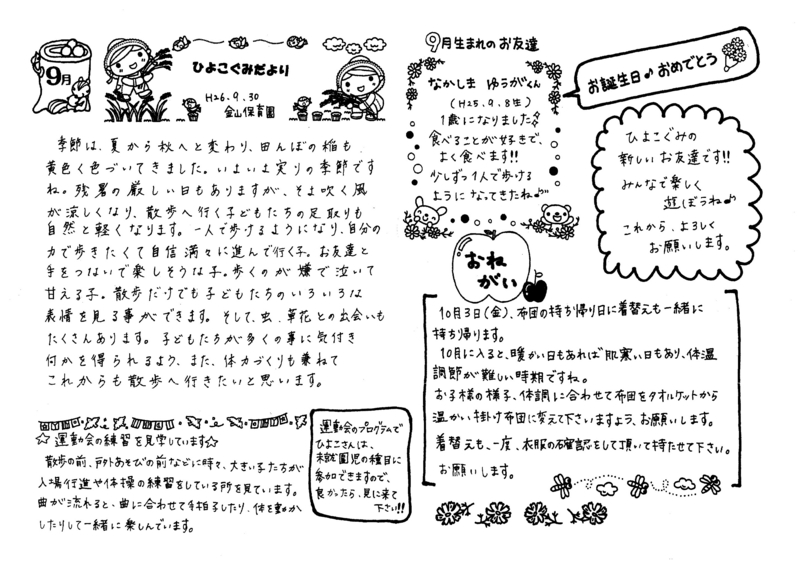 9月
ひよこぐみだより
H26.9.30
金山保育園
季節は、夏から秋へと変わり、田んぼの稲も
黄色く色づいてきました。いよいよ実りの季節です
ね。残暑の厳しい日もありますが、そよ吹く風
が涼しくなり、散歩へ行く子どもたちの足取りも
自然と軽くなります。一人で歩けるようになり、自分の
力で歩きたくて自信満々に進んで行く子。お友達と
手をつないで楽しそうな子。歩くのが嫌で泣いて
甘える子。散歩だけでも子どもたちのいろいろな
表情を見る事ができます。そして、虫、草花との出会いも
たくさんあります。子どもたちが多くの事に気付き
何かを得られるよう、また、体力づくりも兼ねて
これからも散歩へ行きたいと思います。
☆運動会の練習を見学しています☆
散歩の前、戸外あそびの前などに時々、大きい子たちが
入場行進や体操の練習をしている所を見ています。
曲が流れると、曲に合わせて手拍子したり、体を動か
したりして一緒に楽しんでいます。
運動会のプログラムで
ひよこさんは、
未就園児の種目に
参加できますので、
良かったら、見に来て
下さい!!
9月生まれのお友達
なかしま ゆうがくん
(H25.9.8生)
1歳になりました☆
食べることが好きで、
よく食べます!!
少しずつ1人で歩ける
ようになってきたね♪
お誕生日♪おめでとう
ひよこぐみの
新しいお友達です!!
みんなで楽しく
遊ぼうね♪
これから、よろしく
お願いします。
おね
がい
10月3日(金)、布団の持ち帰り日に着替えも一緒に
持ち帰ります。
10月に入ると、暖かい日もあれば肌寒い日もあり、体温
調節が難しい時期ですね。
お子様の様子、体調に合わせて布団をタオルケットから
温かい掛け布団に変えて下さいますよう、お願いします。
着替えも、一度、衣服の確認をして頂いて持たせて下さい。
お願いします。